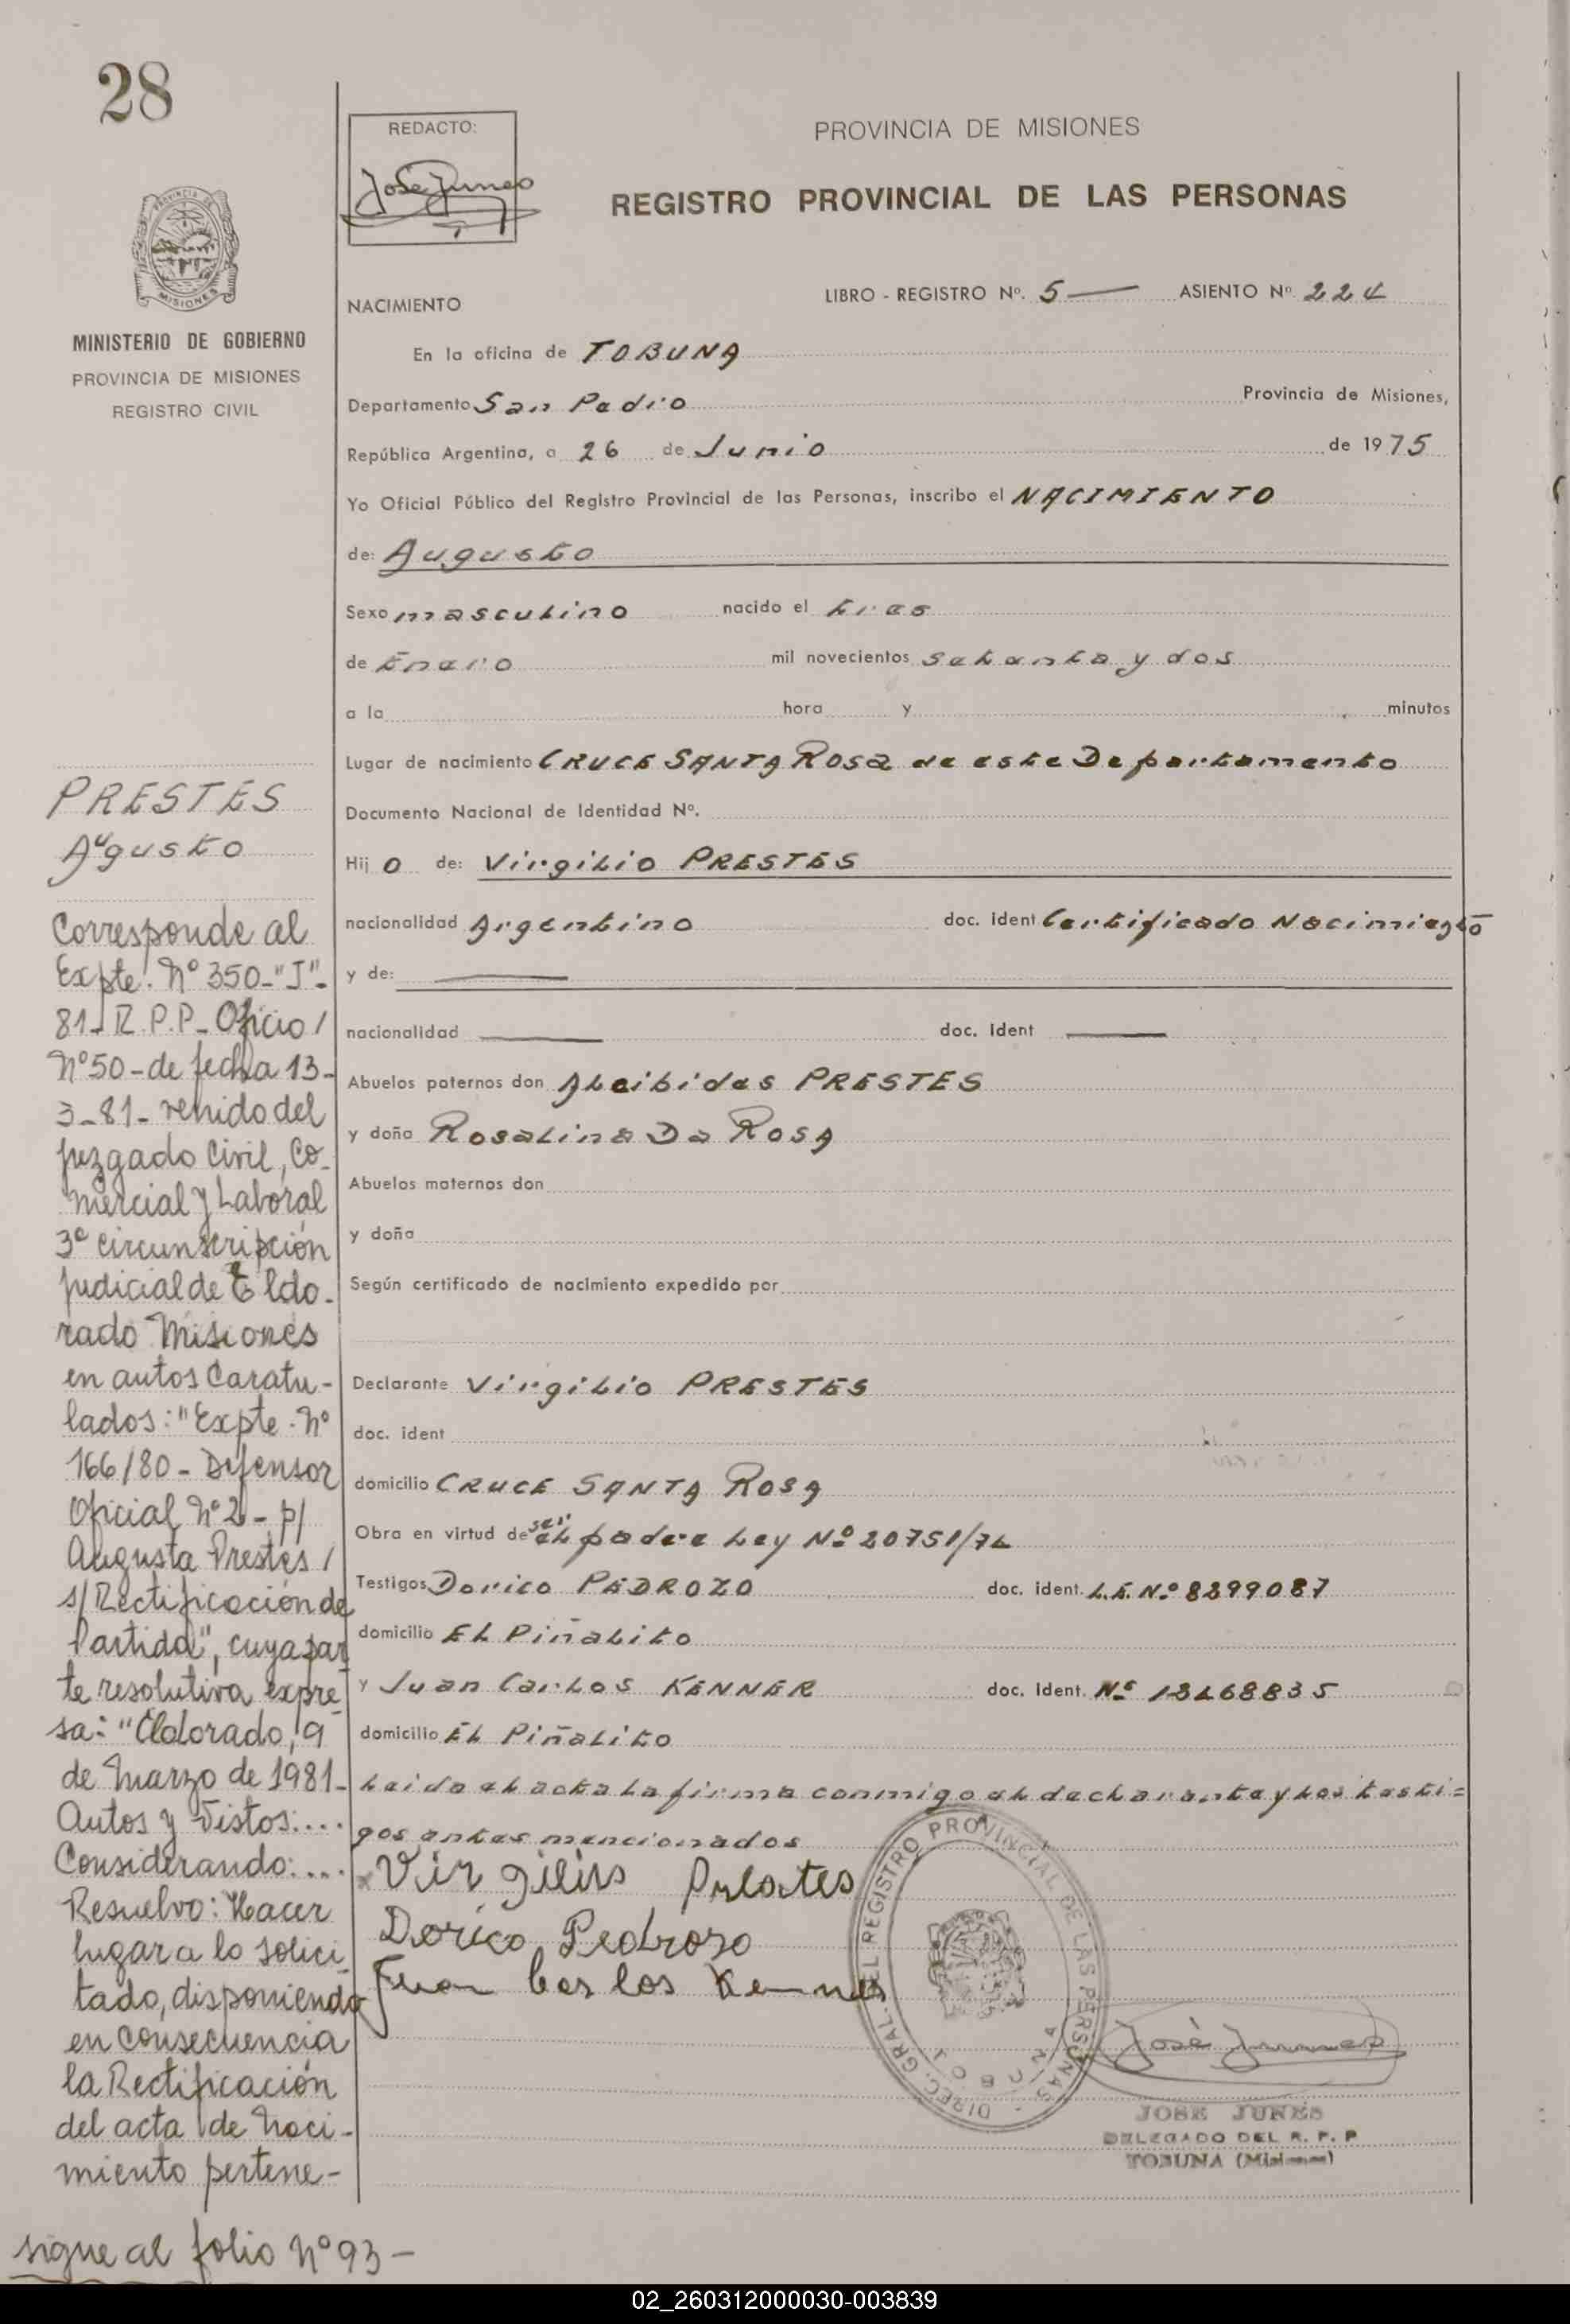 28
REDACTO:
José Junes
PROVINCIA DE MISIONES
REGISTRO PROVINCIAL DE LAS PERSONAS
PROVINCIA DE
MISIONES
MINISTERIO DE GOBIERNO
PROVINCIA DE MISIONES
REGISTRO CIVIL
NACIMIENTO
LIBRO - REGISTRO Nº. 5 — ASIENTO Nº. 224
En la oficina de TOBUNA
Departamento San Pedro Provincia de Misiones,
República Argentina, a 26 de Junio de 1975
Yo Oficial Público del Registro Provincial de las Personas, inscribo el NACIMIENTO
de: Augusto
Sexo masculino nacido el tres
de Enero mil novecientos setenta y dos
a la hora y minutos
Lugar de nacimiento CRUCE SANTA ROSA de este Departamento
Documento Nacional de Identidad Nº.
Hij o de: Virgilio PRESTES
nacionalidad Argentino doc. ident Certificado Nacimiento
y de: —
nacionalidad — doc. ident —
Abuelos paternos don Alcibides PRESTES
y doña Rosalina Da ROSA
Abuelos maternos don
y doña
Según certificado de nacimiento expedido por
Declarante Virgilio PRESTES
doc. ident
domicilio CRUCE SANTA ROSA
Obra en virtud de ser el padre Ley Nº 20751/74
Testigos Dorico PEDROZO doc. ident. L.E. Nº 8299087
domicilio EL Piñalito
y Juan Carlos KENNER doc. Ident. Nº 13468835
domicilio EL Piñalito
Leida el acta la firma conmigo el declarante y los testi=
gos antes mencionados
x Virgilio Prestes
Dorico Pedrozo
Juan Carlos Kenner
DIREC. GRAL. DEL REGISTRO PROVINCIAL DE LAS PERSONAS
TOBUNA
José Junes
JOSE JUNES
DELEGADO DEL R. P. P
TOBUNA (Misiones)
PRESTES
Augusto
Corresponde al
Expte. Nº 350-"J"-
81- R.P.P- Oficio/
Nº50-de fecha 13-
3-81- venido del
juzgado Civil, Co-
mercial y Laboral
3º circunscripción
judicial de Eldo-
rado Misiones
en autos Caratu-
lados: "Expte. Nº
166/80 - Defensor
Oficial Nº2 - p/
Augusta Prestes/
s/Rectificación de
Partida", cuya par
te resolutiva expre-
sa: "Eldorado, 9
de Marzo de 1981-
Autos y Vistos:....
Considerando:....
Resuelvo: Hacer
lugar a lo solici-
tado, disponiendo
en consecuencia
la Rectificación
del acta de naci-
miento pertene-
sigue al folio Nº93-
02_260312000030-003839